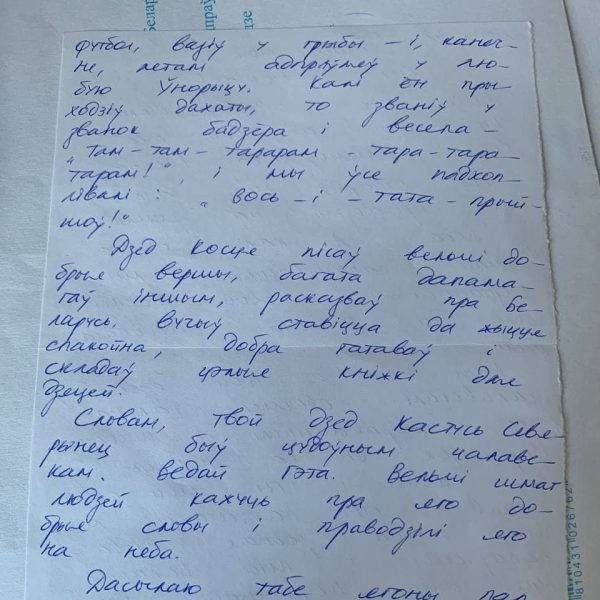 футбол, вазіў у грыбы – і, канеч-
не, леталі адпрўмеў у лю-
бую ўнорыцу. Калі ён пры-
ходзіў дахаты, то званіў у
званок бадзёра і весела –
"Там-там-тарарам-тара-тара-
тарам!", і мы ўсе падхоп-
лівалі: "вось-і-тата-прый-
шоў!"
Дзед Косця пісаў вельмі до-
брые вершы, багата дапама-
гаў іншым, расказваў пра Бе-
ларусь, вучыў ставіцца да жыцця
спакойна, добра гатаваў і
складаў цэлые кніжкі для
дзецей.
Словам, твой дзед Кастусь Севе-
рынец быў цудоўным чалаве-
кам. Ведай гэта. Вельмі шмат
людзей кажуць пра яго до-
брые словы і праводзілі яго
на неба.
Дасылаю табе ягоны
810431026762